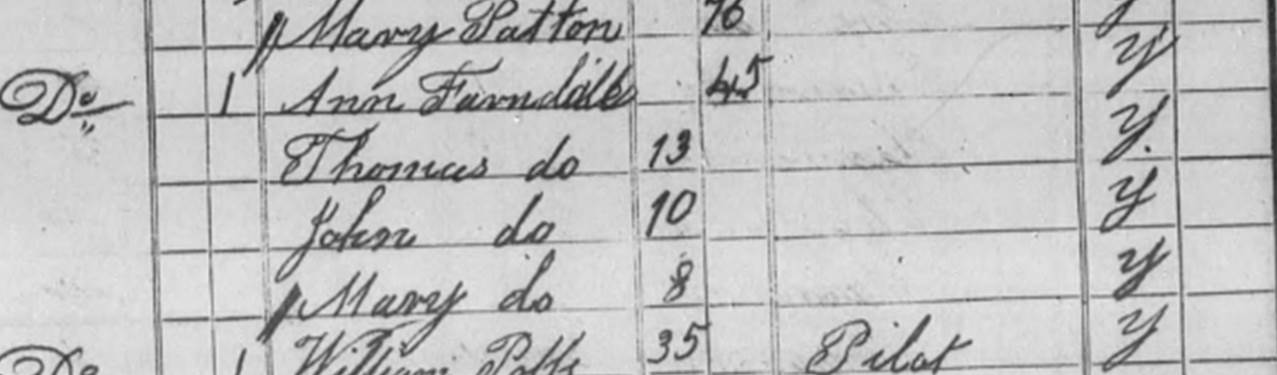 Mary Patton 76 y
Do 1 Ann Farndale 45 y
Thomas do 13 y.
John do 10 y
Mary do 8 y
Do 1 William Potts 35 Pilot y